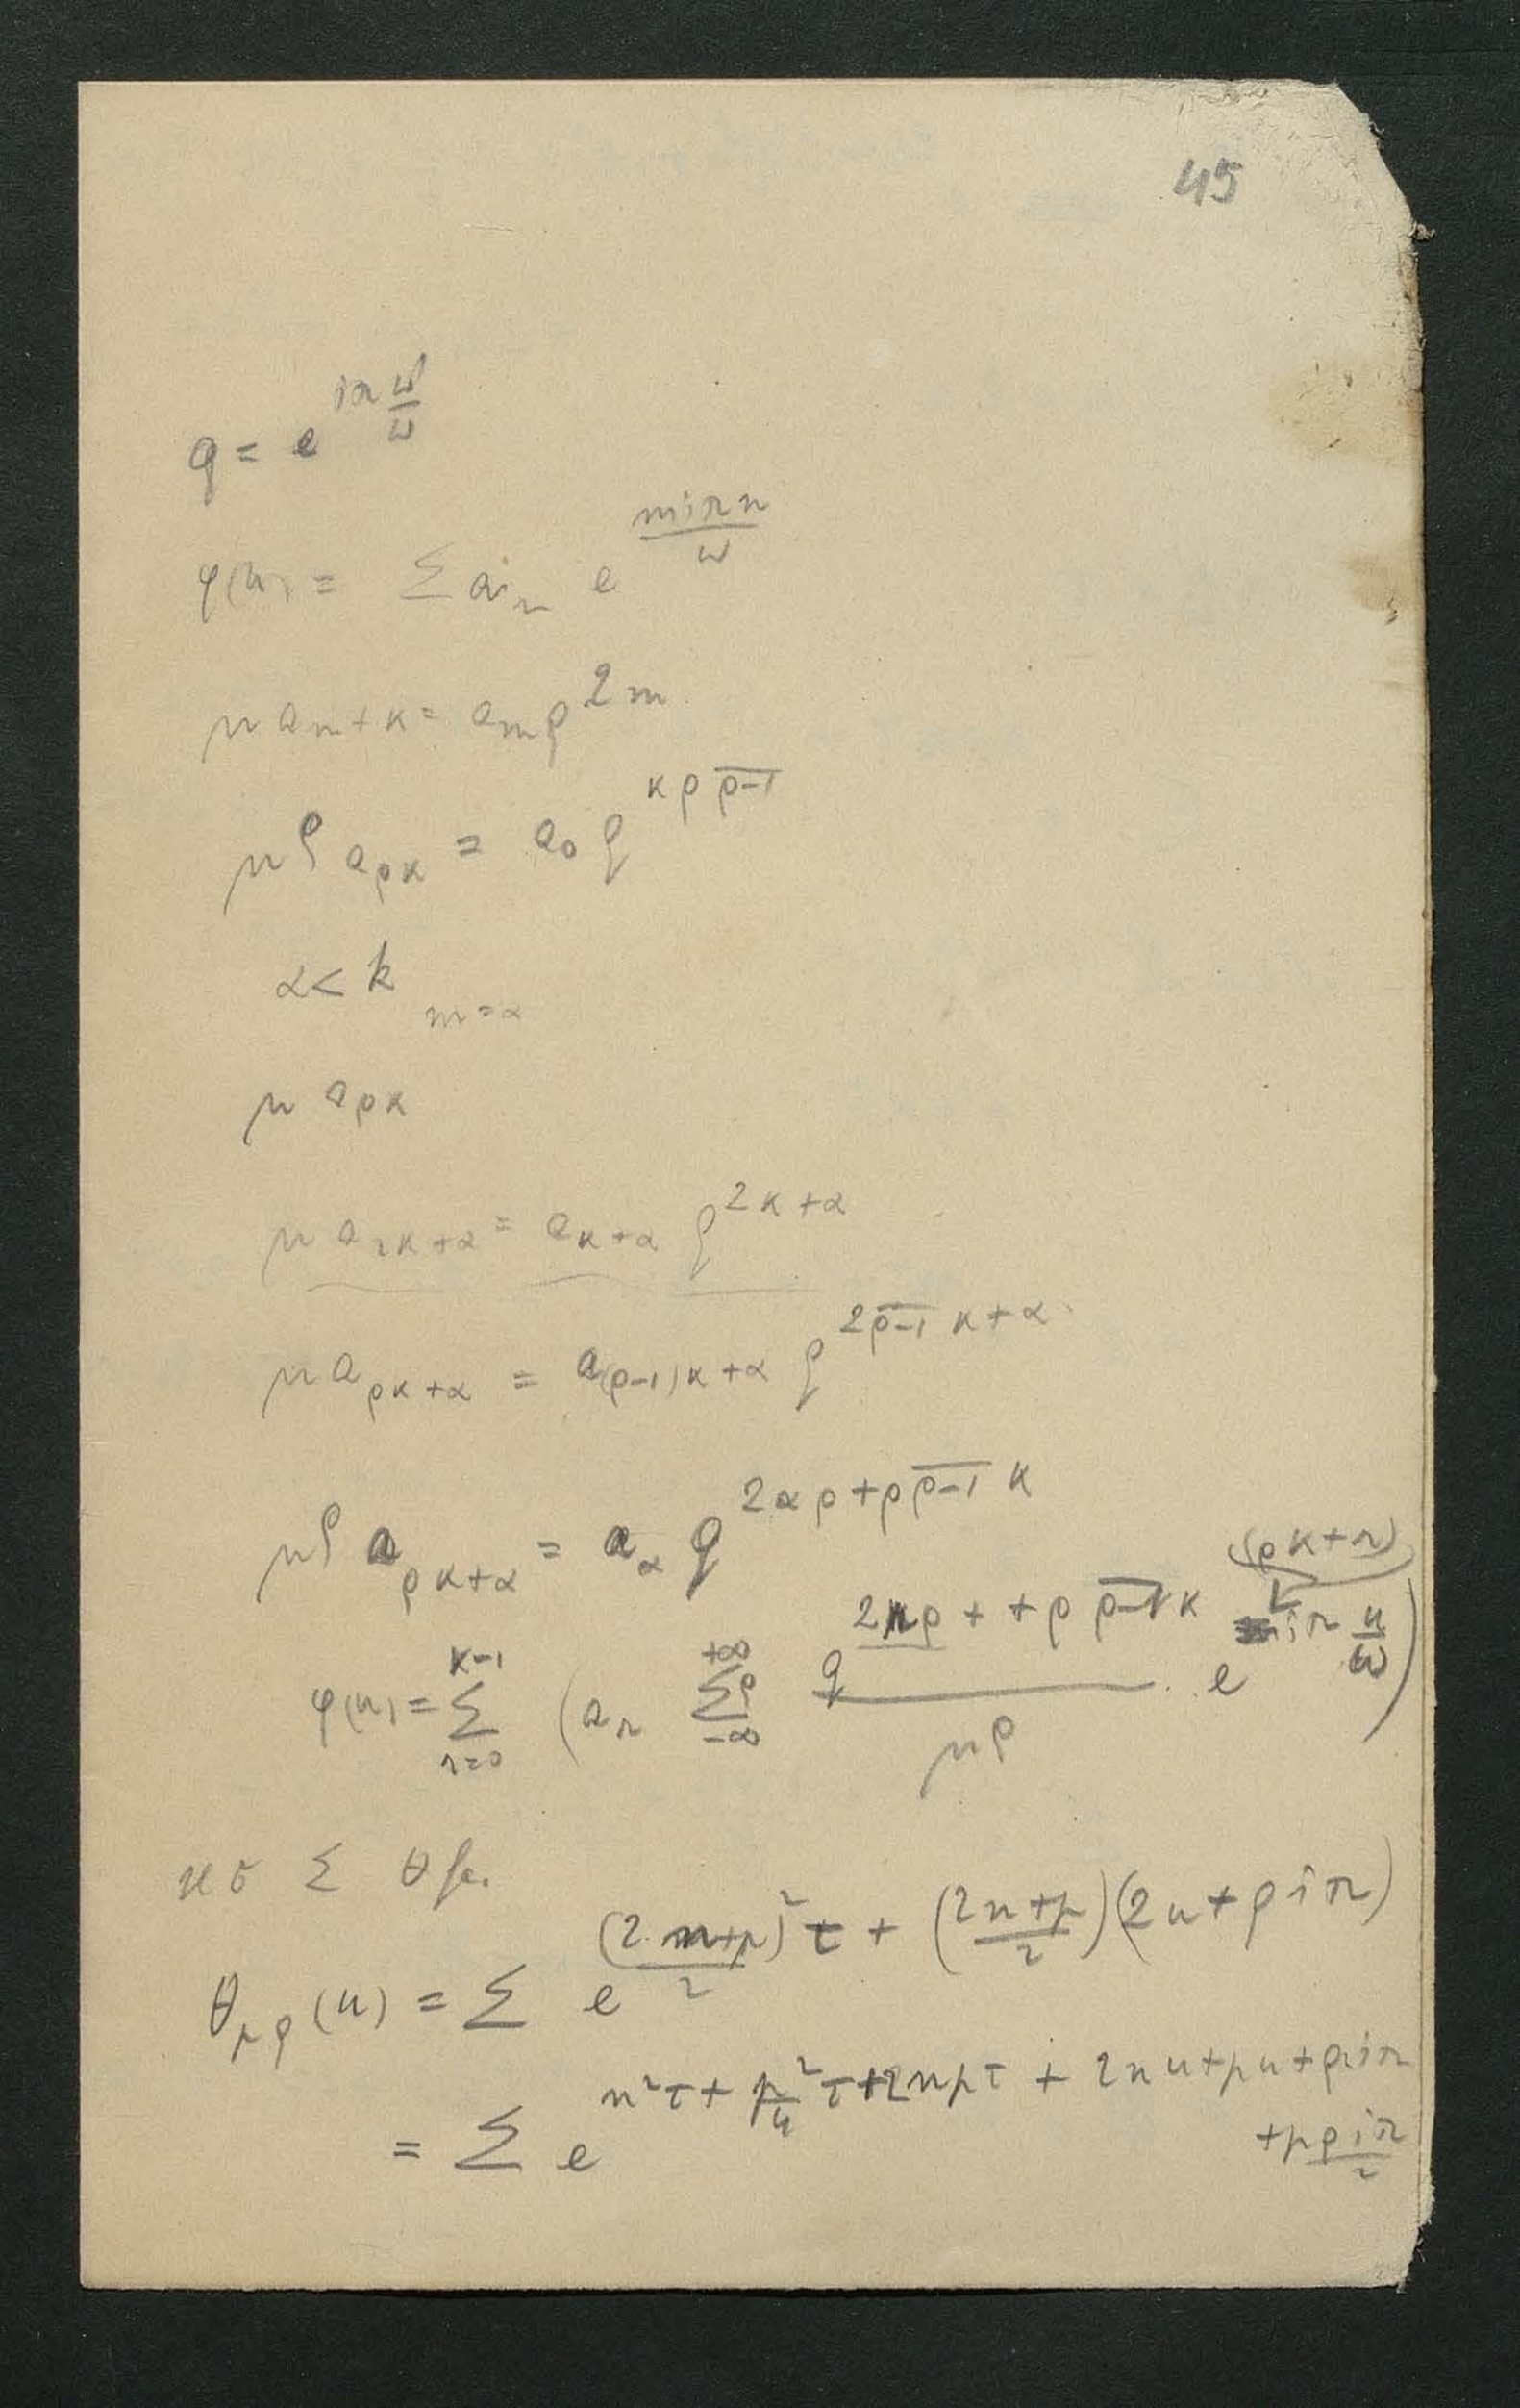 45
q = e^{iπ ω'/ω}
φ(u) = Σ a_m e^{miπu/ω}
μ a_{m+κ} = a_m q^{2m}
μ^ρ a_{ρκ} = a_0 q^{κρ \overline{ρ-1}}
α < k
m = α
μ a_{ρκ}
μ a_{2κ+α} = a_{κ+α} q^{2κ+α}
μ a_{ρκ+α} = a_{(ρ-1)κ+α} q^{2\overline{ρ-1} κ+α}
μ^ρ a_{ρκ+α} = a_α q^{2αρ+ρ\overline{ρ-1} κ}
φ(u) = Σ_{r=0}^{κ-1} (a_r Σ^ρ_{-∞}^{+∞} q^{2rρ + +ρ \overline{ρ-1} κ} / μ^ρ · e^{(ρκ+r) iπ u/ω})
Σ θ
θ_{μρ}(u) = Σ e^{((2n+μ)/2)^2 τ + ((2n+μ)/2)(2u+ρiπ)}
= Σ e^{n^2τ + μ^2/4 τ + 2nμτ + 2nu+μu+ρniπ
+μρiπ/2}